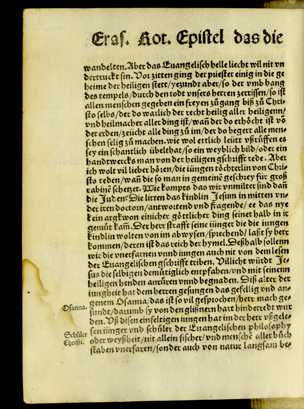 Eras. Rot. Epistel das die
wandelten. Aber das Euangelisch helle liecht wil nit vn
dertruckt sin. Vor zitten ging der priester einig in die ge
heime der heiligen stett / yezundt aber / so der vmb hang
des tempels / durch den todt vnsers herren zerrissen / so ist
allen menschen gegeben ein freyen zůgang biß zů Chri
sto selbs / der do warlich der recht heilig aller heiligenn /
vnd heilmacher aller ding ist / wan der do erhöcht ist vō
der erden / zeücht alle ding zů im / der do begert alle men-
schen selig zů machen. wie wol etlich leütt vßrůffen es
sey ein schantlich übeltat / so ein weyblich bild / oder ein
handtwercks man von der heiligen gschifft rede. Aber
ich wolt vil lieber hören / die iungen töchterlin von Chri-
sto reden / wan die so man in gemein geschrey für groß
rabinē scherget. Wie kompts das wir vnmilter sind daň
die Juden? Die litten das kindlin Jesum in mitten vn-
der iren doctorn / antwortend vnd fragende / es das nye
kein argkwon einicher götlicher ding seiner halb in ir
gemüt kam. Der herr straffte sine iunger die die iungen
kindlin wolten von im abwysen / sprechend / lasst sy herr
kommen / deren ist das reich der hymel. Deßhalb sollenn
wir die vnerfarnen vnd iungen auch nit von dem lesen
der Euangelischen geschifft triben. Villicht würdt Je-
sus die selbigen demütiglich entpfahen / vnd mit seinenn
heiligen henden anrüren vnnd begnaden. Diß alter der
iungheit hat dem herren gesungen das gesellig vnd an-
Osanna. genem Osanna / das ist so vil gesprochen / herr mach ge-
sundt / darumb sy von den glißnern hart hinderredt wur
den. Vß disen einfeltigen iungen hat im der herr vßgele-
Schůler sen iünger vnd schůler der Euangelischen philosophy
Christi. oder weyßheit / nit allein fischer / vnd mensche aller bůch
staben vnerfaren / sonder auch von natur langsam be